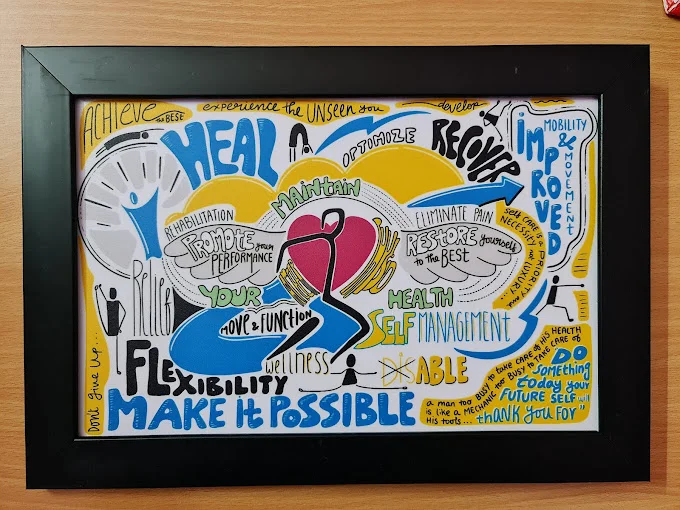 ACHIEVE the BESE
experience the UNSEEN you
develop
HEAL
OPTIMIZE
RECOVER
iMPROVED
MOBILITY
&
MOVEMENT
MAINTAIN
REHABILITATION
PROMOTE your
PERFORMANCE
ELIMINATE PAIN
RESTORE yourself
to the BEST
self CARE is a PRIORITY and
NECESSITY not LUXURY...
RELIEF
YOUR
HEALTH
MOVE & FUNCTION
SELF MANAGEMENT
FLEXIBILITY
wellness
DISABLE
MAKE it POSSIBLE
DONT GIVE UP...
a man too BUSY to take CARE of HIS HEALTH
is like a MECHANIC too BUSY to TAKE CARE of
HIS tools...
DO
something
today your
FUTURE SELF will
thank you FOR"